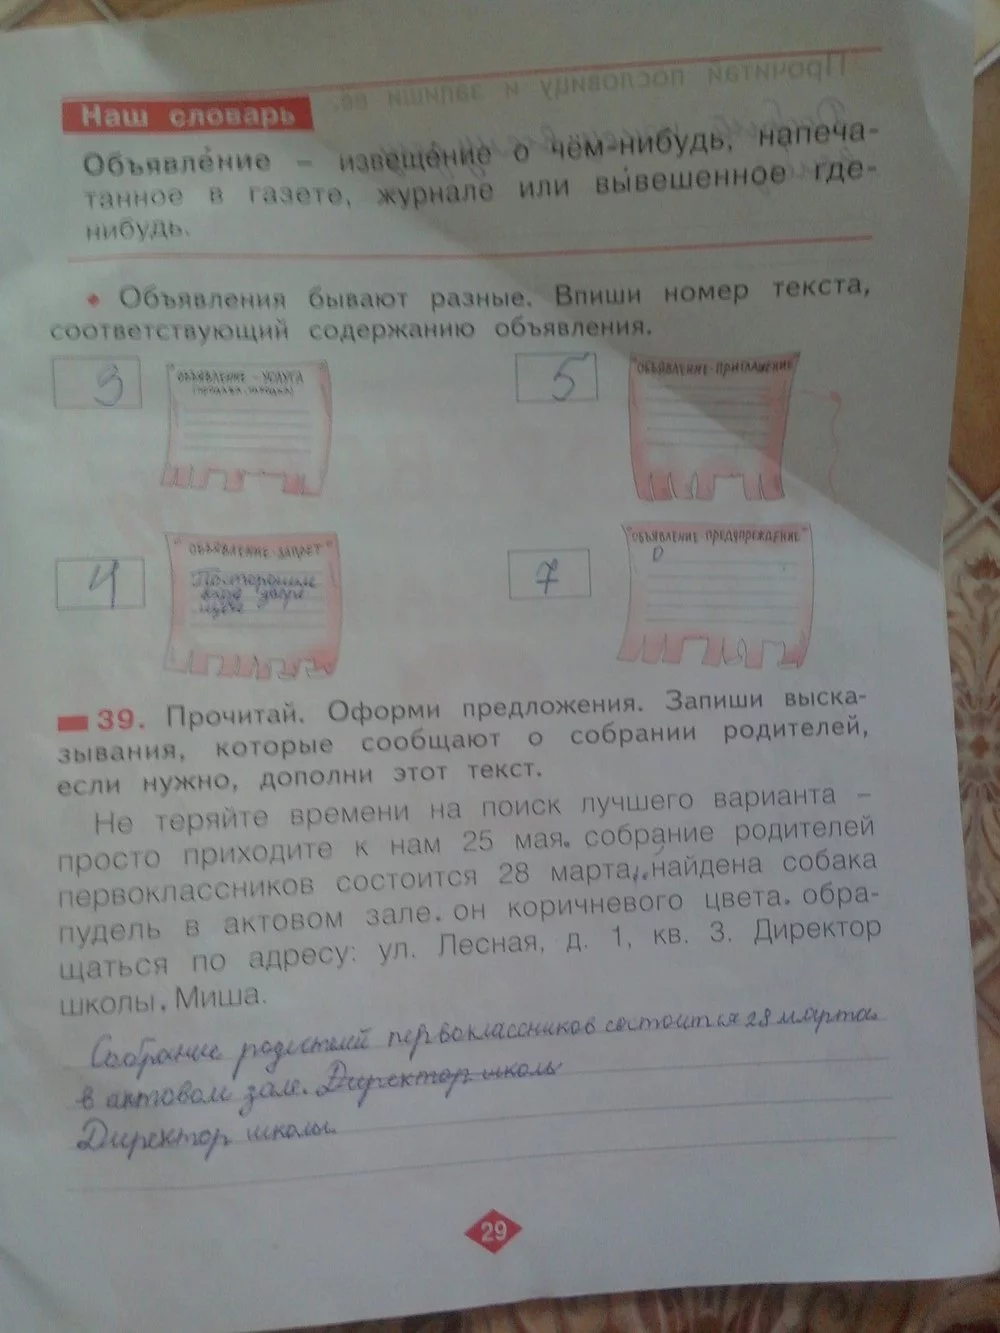 Наш словарь
Объявле́ние – извеще́ние о чём-нибудь, напеча-
танное в газете, журнале или вы́вешенное где-
нибудь.
• Объявления бывают разные. Впиши номер текста,
соответствующий содержанию объявления.
3
ОБЪЯВЛЕНИЕ - УСЛУГА
5
ОБЪЯВЛЕНИЕ-ПРИГЛАШЕНИЕ
4
ОБЪЯВЛЕНИЕ-ЗАПРЕТ
Посторонним
вход
7
ОБЪЯВЛЕНИЕ-ПРЕДУПРЕЖДЕНИЕ
39. Прочитай. Оформи предложения. Запиши выска-
зывания, которые сообщают о собрании родителей,
если нужно, дополни этот текст.
Не теряйте времени на поиск лучшего варианта –
просто приходите к нам 25 мая. собрание родителей
первоклассников состоится 28 марта. найдена собака
пудель в актовом зале. он коричневого цвета. обра-
щаться по адресу: ул. Лесная, д. 1, кв. 3. Директор
школы. Миша.
Собрание родителей первоклассников состоится 28 марта
в актовом зале. Директор школы
Директор школы.
29